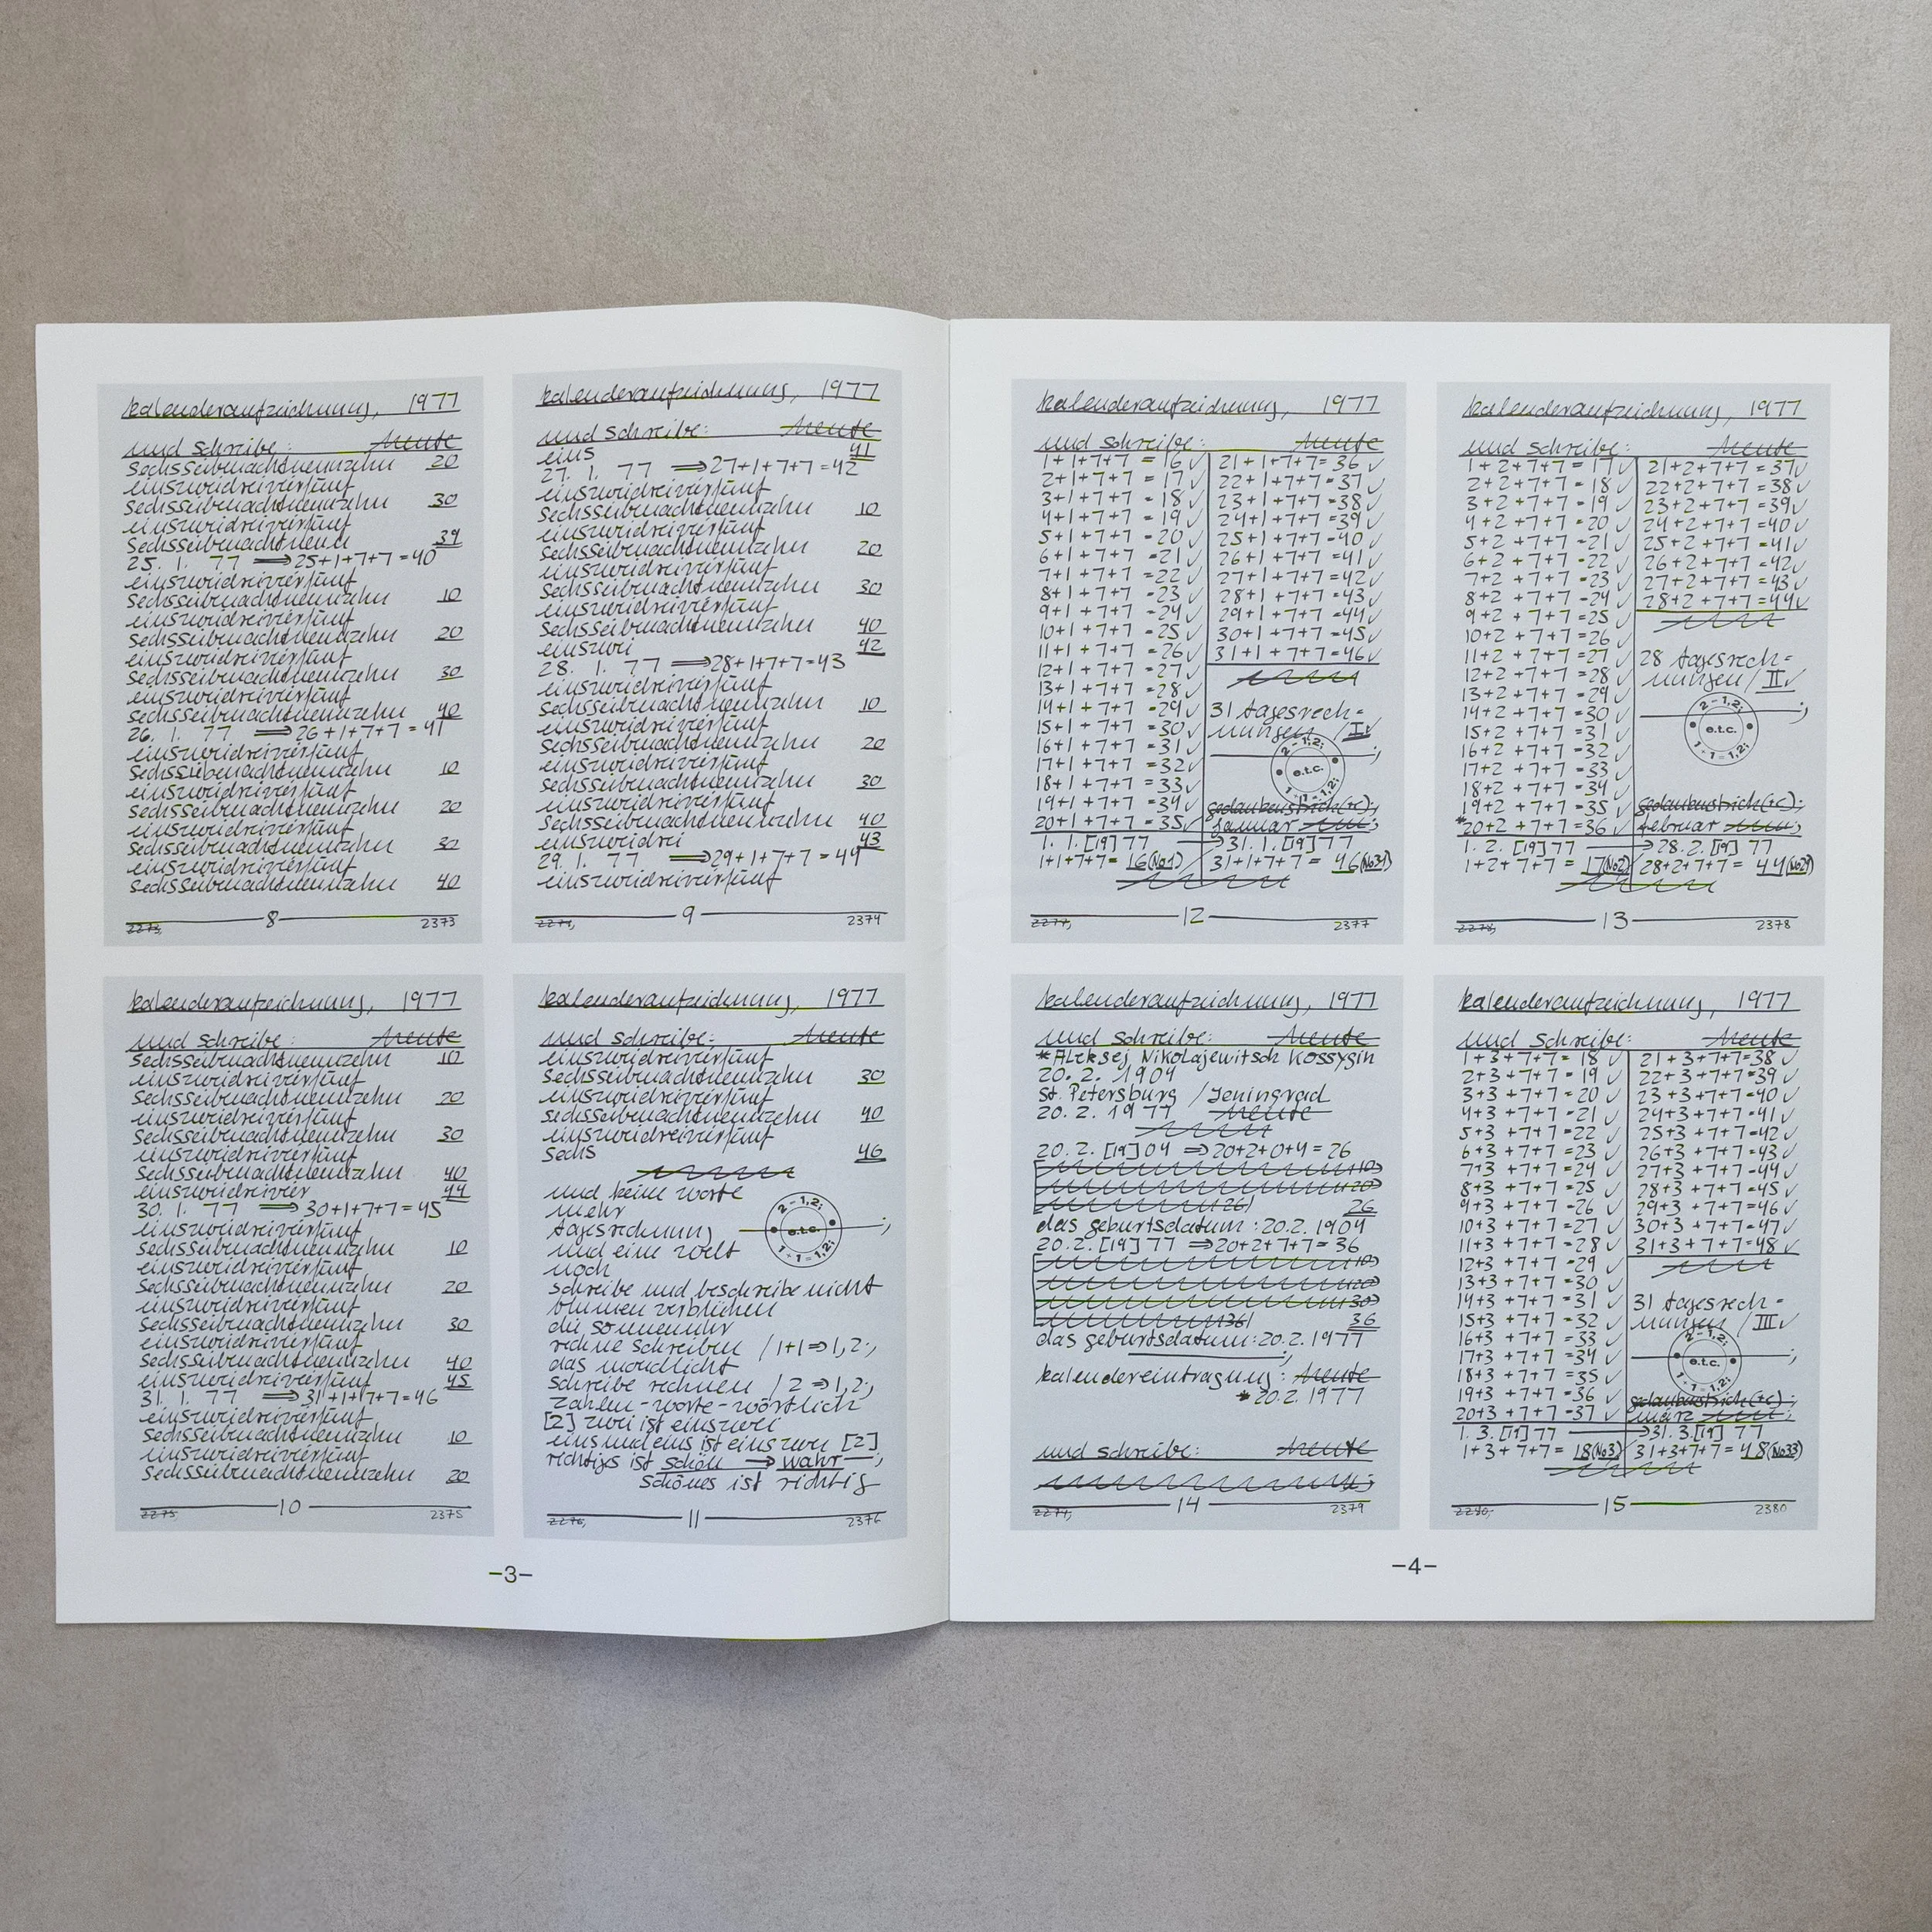 kalenderaufzeichnung, 1977
und schreibe: heute
sechssiebenachtneunzehn 20
einszweidreivierfünf
sechssiebenachtneunzehn 30
einszweidreivierfünf
sechssiebenachtneun 39
25. 1. 77 ⟹ 25+1+7+7=40
einszweidreivierfünf
sechssiebenachtneunzehn 10
einszweidreivierfünf
sechssiebenachtneunzehn 20
einszweidreivierfünf
sechssiebenachtneunzehn 30
einszweidreivierfünf
sechssiebenachtneunzehn 40
26. 1. 77 ⟹ 26+1+7+7=41
einszweidreivierfünf
sechssiebenachtneunzehn 10
einszweidreivierfünf
sechssiebenachtneunzehn 20
einszweidreivierfünf
sechssiebenachtneunzehn 30
einszweidreivierfünf
sechssiebenachtneunzehn 40
8 2373
kalenderaufzeichnung, 1977
und schreibe: heute
eins 41
27. 1. 77 ⟹ 27+1+7+7=42
einszweidreivierfünf
sechssiebenachtneunzehn 10
einszweidreivierfünf
sechssiebenachtneunzehn 20
einszweidreivierfünf
sechssiebenachtneunzehn 30
einszweidreivierfünf
sechssiebenachtneunzehn 40
einszwei 42
28. 1. 77 ⟹ 28+1+7+7=43
einszweidreivierfünf
sechssiebenachtneunzehn 10
einszweidreivierfünf
sechssiebenachtneunzehn 20
einszweidreivierfünf
sechssiebenachtneunzehn 30
einszweidreivierfünf
sechssiebenachtneunzehn 40
einszweidrei 43
29. 1. 77 ⟹ 29+1+7+7=44
einszweidreivierfünf
9 2374
kalenderaufzeichnung, 1977
und schreibe: heute
sechssiebenachtneunzehn 10
einszweidreivierfünf
sechssiebenachtneunzehn 20
einszweidreivierfünf
sechssiebenachtneunzehn 30
einszweidreivierfünf
sechssiebenachtneunzehn 40
einszweidreivier 44
30. 1. 77 ⟹ 30+1+7+7=45
einszweidreivierfünf
sechssiebenachtneunzehn 10
einszweidreivierfünf
sechssiebenachtneunzehn 20
einszweidreivierfünf
sechssiebenachtneunzehn 30
einszweidreivierfünf
sechssiebenachtneunzehn 40
einszweidreivierfünf 45
31. 1. 77 ⟹ 31+1+7+7=46
einszweidreivierfünf
sechssiebenachtneunzehn 10
einszweidreivierfünf
sechssiebenachtneunzehn 20
10 2375
kalenderaufzeichnung, 1977
und schreibe: heute
einszweidreivierfünf
sechssiebenachtneunzehn 30
einszweidreivierfünf
sechssiebenachtneunzehn 40
einszweidreivierfünf
sechs 46
und keine worte
mehr
tagesrechnung
und eine welt
noch
2-1,2; e.t.c. 1+1=1,2;
schreibe und beschreibe nicht
blumen verblichen
die sonnenuhr
rechne schreiben /1+1⇒1,2;
das mondlicht
schreibe rechnen /2⇒1,2;
zahlen-worte-wörtlich
[2] zwei ist einszwei
eins und eins ist eins zwei [2]
richtiges ist schön → wahr—;
schönes ist richtig
11 2376
-3-
kalenderaufzeichnung, 1977
und schreibe: heute
1+1+7+7=16✓
2+1+7+7=17✓
3+1+7+7=18✓
4+1+7+7=19✓
5+1+7+7=20✓
6+1+7+7=21✓
7+1+7+7=22✓
8+1+7+7=23✓
9+1+7+7=24✓
10+1+7+7=25✓
11+1+7+7=26✓
12+1+7+7=27✓
13+1+7+7=28✓
14+1+7+7=29✓
15+1+7+7=30✓
16+1+7+7=31✓
17+1+7+7=32✓
18+1+7+7=33✓
19+1+7+7=34✓
20+1+7+7=35✓
21+1+7+7=36✓
22+1+7+7=37✓
23+1+7+7=38✓
24+1+7+7=39✓
25+1+7+7=40✓
26+1+7+7=41✓
27+1+7+7=42✓
28+1+7+7=43✓
29+1+7+7=44✓
30+1+7+7=45✓
31+1+7+7=46✓
31 tagesrech=
nungen /I✓
2-1,2; e.t.c. 1+1=1,2;
gedankenstrich(+c);
januar heute;
1. 1. [19]77 → 31. 1. [19]77
1+1+7+7=16(No1) / 31+1+7+7=46(No31)
12 2377
kalenderaufzeichnung, 1977
und schreibe: heute
1+2+7+7=17✓
2+2+7+7=18✓
3+2+7+7=19✓
4+2+7+7=20✓
5+2+7+7=21✓
6+2+7+7=22✓
7+2+7+7=23✓
8+2+7+7=24✓
9+2+7+7=25✓
10+2+7+7=26✓
11+2+7+7=27✓
12+2+7+7=28✓
13+2+7+7=29✓
14+2+7+7=30✓
15+2+7+7=31✓
16+2+7+7=32✓
17+2+7+7=33✓
18+2+7+7=34✓
19+2+7+7=35✓
*20+2+7+7=36✓
21+2+7+7=37✓
22+2+7+7=38✓
23+2+7+7=39✓
24+2+7+7=40✓
25+2+7+7=41✓
26+2+7+7=42✓
27+2+7+7=43✓
28+2+7+7=44✓
28 tagesrech=
nungen /II✓
2-1,2; e.t.c. 1+1=1,2;
gedankenstrich(+c);
februar heute;
1. 2. [19]77 → 28. 2. [19]77
1+2+7+7=17(No2) / 28+2+7+7=44(No29)
13 2378
kalenderaufzeichnung, 1977
und schreibe: heute
*Aleksej Nikolajewitsch Kossygin
20. 2. 1904
St. Petersburg /Leningrad
20. 2. 1977 heute
20. 2. [19]04 ⇒20+2+0+4=26
10
20
26 26
das geburtsdatum: 20.2. 1904
20. 2. [19]77 ⇒20+2+7+7=36
10
20
30
36 36
das geburtsdatum: 20.2. 1977
kalendereintragung: heute
*20.2. 1977
und schreibe: heute
14 2379
kalenderaufzeichnung, 1977
und schreibe: heute
1+3+7+7=18✓
2+3+7+7=19✓
3+3+7+7=20✓
4+3+7+7=21✓
5+3+7+7=22✓
6+3+7+7=23✓
7+3+7+7=24✓
8+3+7+7=25✓
9+3+7+7=26✓
10+3+7+7=27✓
11+3+7+7=28✓
12+3+7+7=29✓
13+3+7+7=30✓
14+3+7+7=31✓
15+3+7+7=32✓
16+3+7+7=33✓
17+3+7+7=34✓
18+3+7+7=35✓
19+3+7+7=36✓
20+3+7+7=37✓
21+3+7+7=38✓
22+3+7+7=39✓
23+3+7+7=40✓
24+3+7+7=41✓
25+3+7+7=42✓
26+3+7+7=43✓
27+3+7+7=44✓
28+3+7+7=45✓
29+3+7+7=46✓
30+3+7+7=47✓
31+3+7+7=48✓
31 tagesrech=
nungen /III✓
2-1,2; e.t.c. 1+1=1,2;
gedankenstrich(+c);
märz heute;
1. 3. [19]77 → 31. 3. [19]77
1+3+7+7=18(No3) / 31+3+7+7=48(No33)
15 2380
-4-